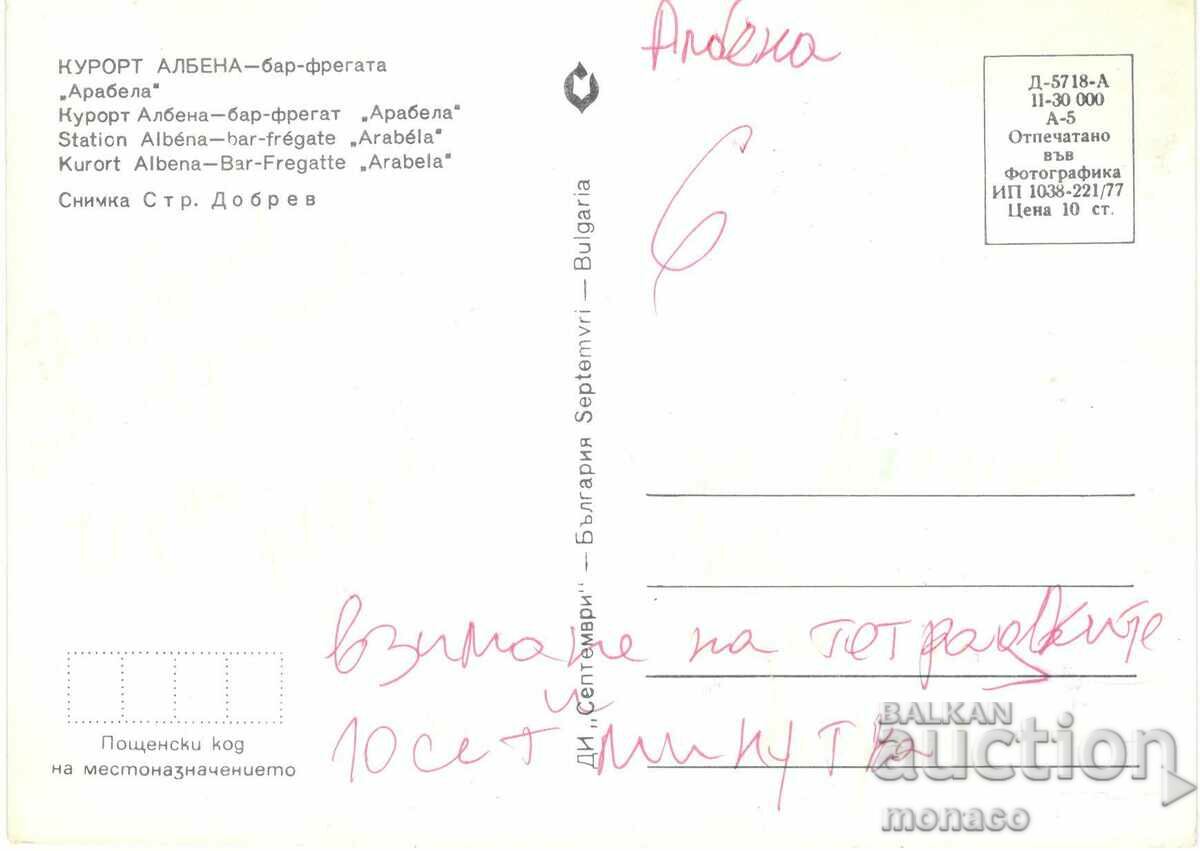 КУРОРТ АЛБЕНА—бар-фрегата
„Арабела"
Курорт Албена—бар-фрегат „Арабела"
Station Albéna—bar-frégate „Arabéla"
Kurort Albena—Bar-Fregatte „Arabela"
Снимка Стр. Добрев
Албена
6
Д-5718-А
II-30 000
А-5
Отпечатано
във
Фотографика
ИП 1038-221/77
Цена 10 ст.
ДИ „Септември" — България Septemvri — Bulgaria
взимане на тетрадките
и
10 сет минутка
Пощенски код
на местоназначението
BALKAN
auction
monaco